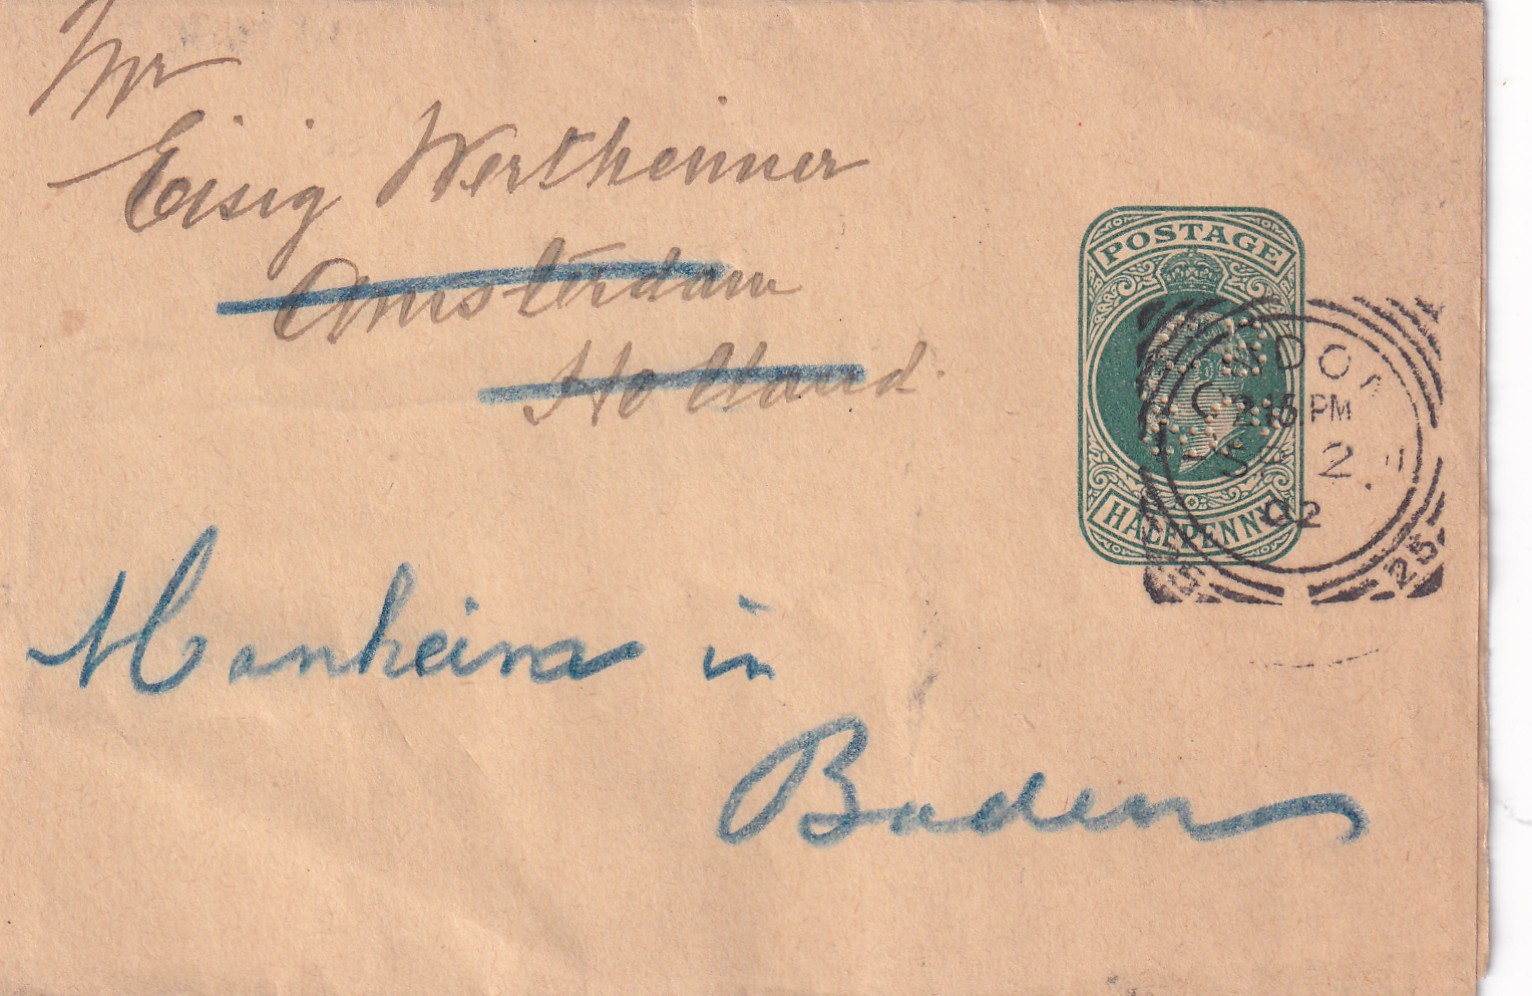 Mr
Eisig Wertheimer
Amsterdam
Holland.
POSTAGE
HALFPENNY
2.15 PM
2
02
25
Manheim in
Baden